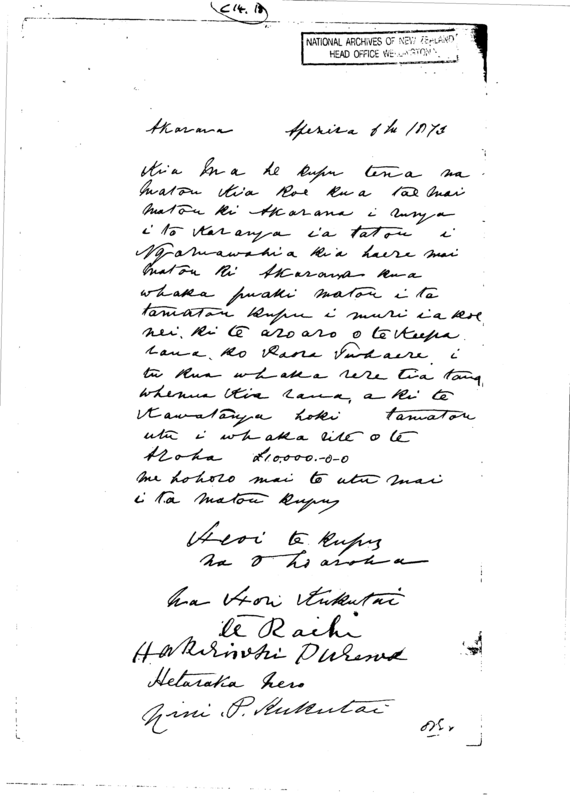 C14. 18
NATIONAL ARCHIVES OF NEW ZEALAND
HEAD OFFICE WELLINGTON
Akarana Aperira 6th 1873
Kia Ma he kupu tena na
matou Kia Koe kua tae mai
matou ki Akarana i runga
i to Karanga ia tatou i
Ngaruawahia kia haere mai
matou ki Akarana kua
whaka puaki matou i ta
tamatou kupu i muri ia koe
nei. ki te aroaro o te Keepa
raua ko Paora Tuhaere i
tu kua whaka rere tia
whenua Kia raua, a ki te
Kawatanga hoki tamatou
utu i whaka rite o te
Aroha £10000.-0-0
me hohoro mai te utu mai
i ta matou kupu
Heoi te kupu
na o hoaroha
na Hori Kukutai
te Raihi
Hetaraka nero
P. Kukutai